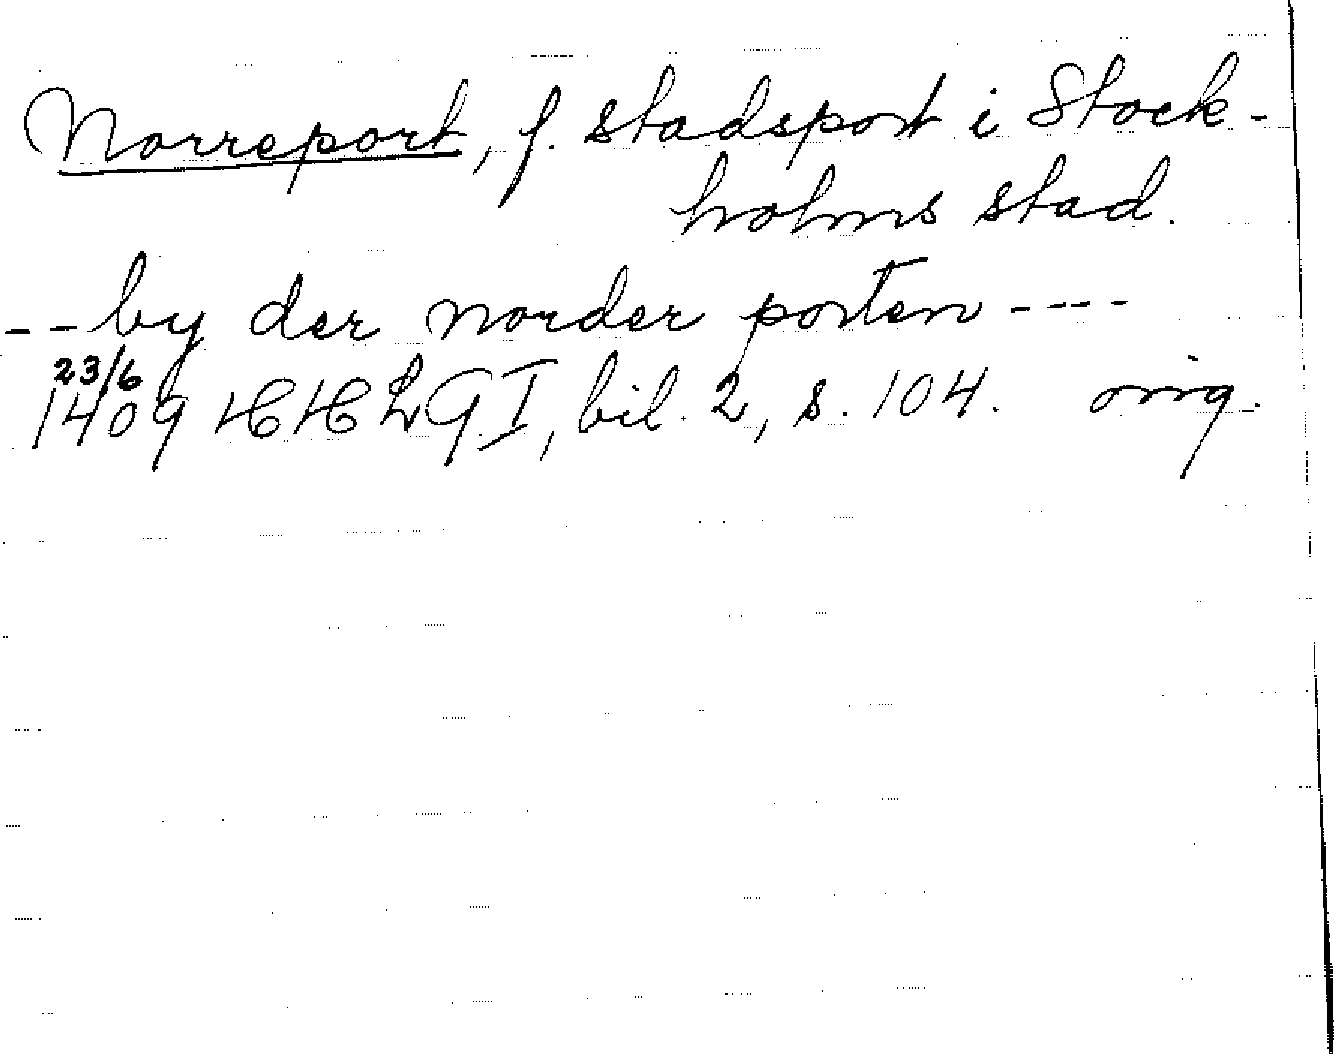 Norreport, f. stadsport i Stock-
holms stad.
-- by der norder porten ----
23/6
1409 HHLGI, bil. 2, s. 104. orig.